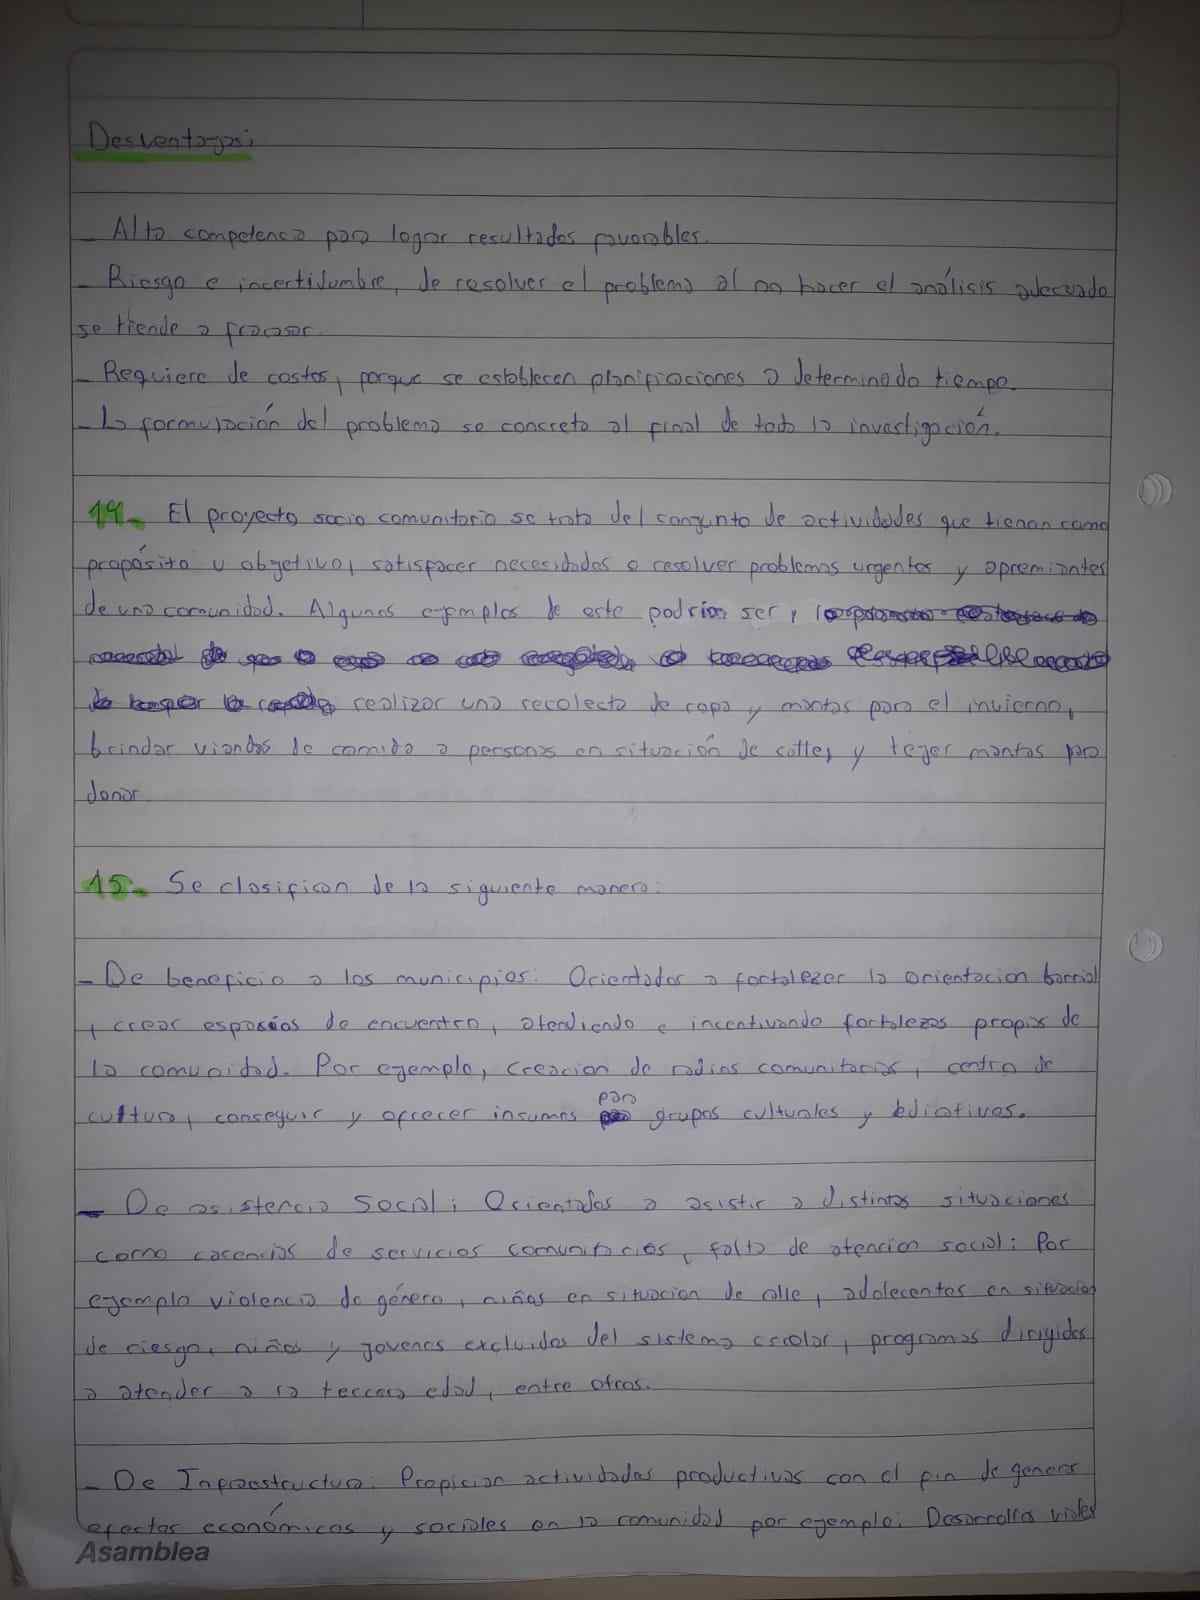 Desventajas:
- Alta competencia para lograr resultados favorables.
- Riesgo e incertidumbre, de resolver el problema al no hacer el análisis adecuado
se tiende a fracasar.
- Requiere de costos, porque se establecen planificaciones a determinado tiempo.
- La formulación del problema se concreta al final de toda la investigación.
14. El proyecto socio comunitario se trata del conjunto de actividades que tienen como
propósito u objetivo, satisfacer necesidades o resolver problemas urgentes y apremiantes
de una comunidad. Algunos ejemplos de este podrían ser,
realizar una recolecta de ropa y mantas para el invierno,
brindar viandas de comida a personas en situación de calle, y tejer mantas para
donar.
15. Se clasifican de la siguiente manera:
- De beneficio a los municipios: Orientados a fortalezer la orientacion barrial
, crear espacios de encuentro, atendiendo e incentivando fortalezas propias de
la comunidad. Por ejemplo, creacion de radios comunitarias, centro de
cultura, conseguir y ofrecer insumos para grupos culturales y
- De asistencia Social: Orientados a asistir a distintas situaciones
como carencias de servicios comunitarios, falta de atencion social: Por
ejemplo violencia de género, niños en situacion de calle, adolecentes en situacion
de riesgo, niños y jovenes excluidos del sistema escolar, programas dirigidos
a atender a la tercera edad, entre otros.
- De Infraestructura: Propician actividades productivas con el fin de generar
efectos económicos y sociales en la comunidad por ejemplo: Desarrollos viales
Asamblea